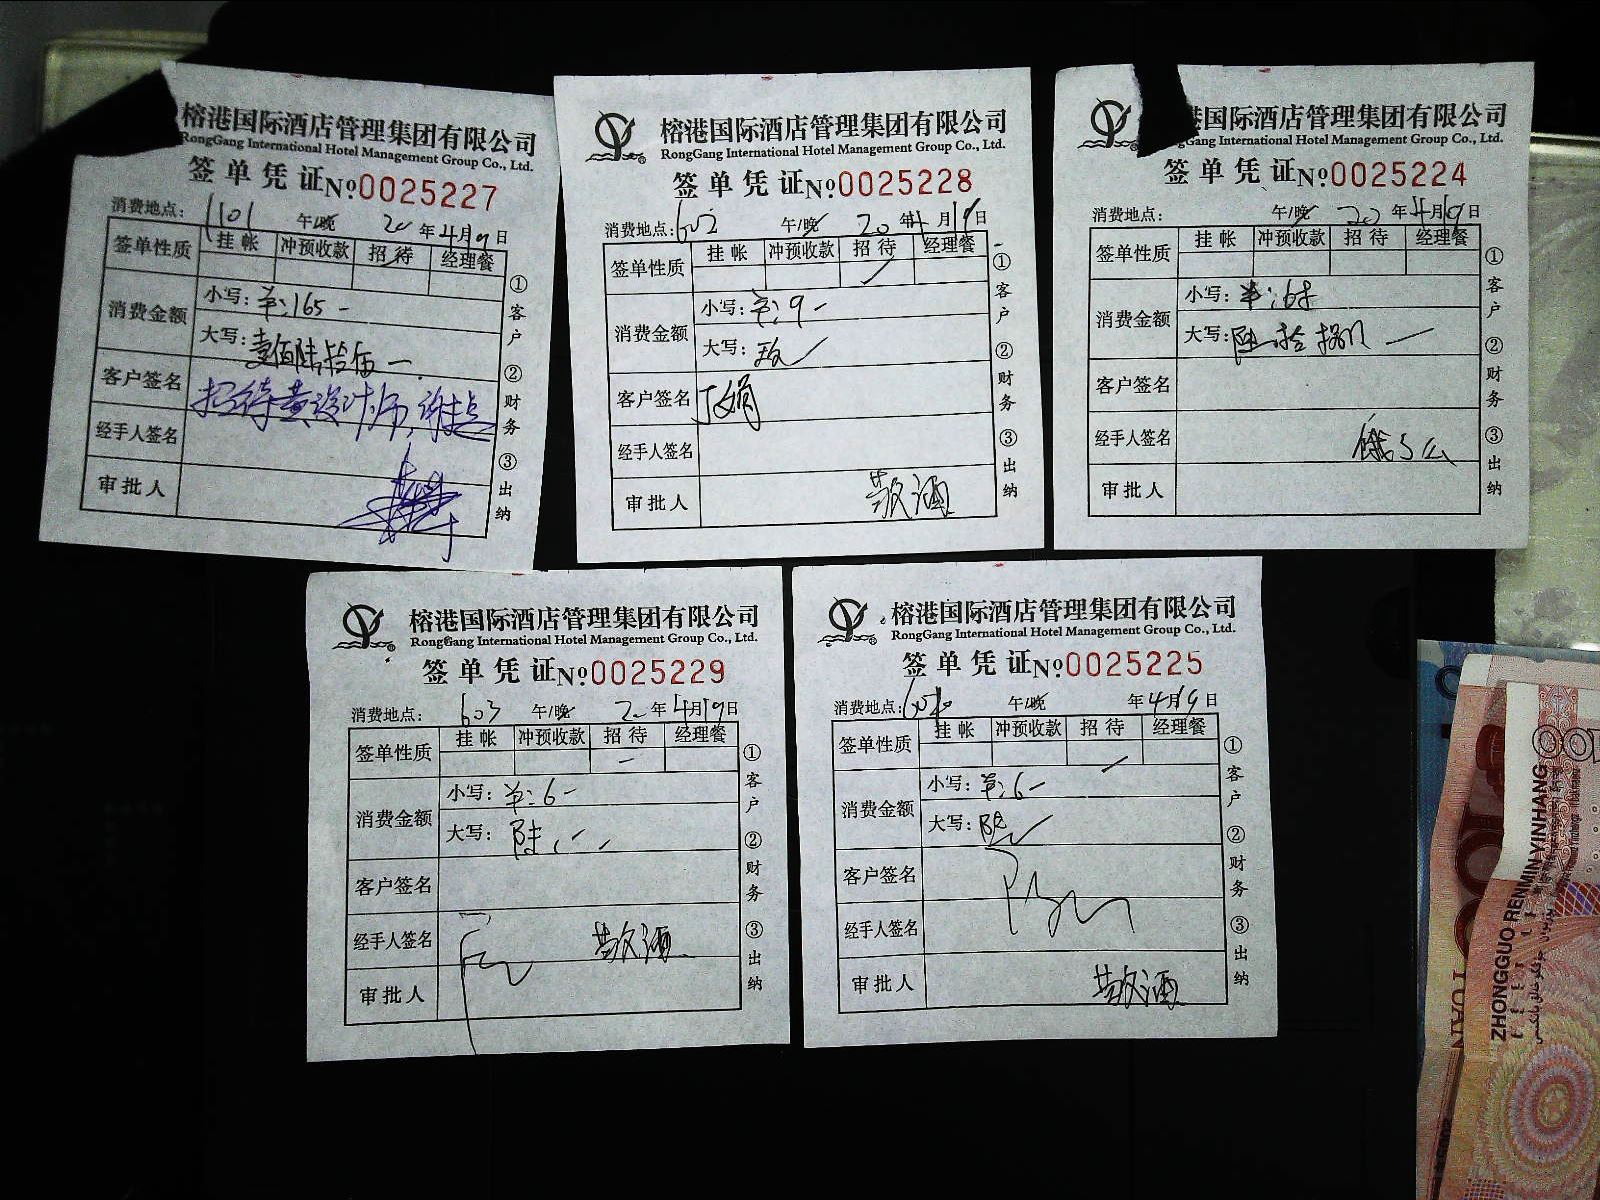 榕港国际酒店管理集团有限公司
RongGang International Hotel Management Group Co., Ltd.
签单凭证 No 0025227
消费地点: 1101 午/晚 20 年 4 月 19 日
签单性质 挂帐 冲预收款 招待 经理餐
消费金额 小写: 单:165 -
大写: 壹佰陆拾伍 一
客户签名 招待黄设计师
经手人签名
审批人
① 客户 ② 财务 ③ 出纳
榕港国际酒店管理集团有限公司
RongGang International Hotel Management Group Co., Ltd.
签单凭证 No 0025228
消费地点: 602 午/晚 20 年 4 月 19 日
签单性质 挂帐 冲预收款 招待 经理餐
消费金额 小写: 单:9 -
大写: 玖
客户签名 丁文娟
经手人签名
审批人 敬酒
① 客户 ② 财务 ③ 出纳
港国际酒店管理集团有限公司
gGang International Hotel Management Group Co., Ltd.
签单凭证 No 0025224
消费地点: 午/晚 20 年 4 月 19 日
签单性质 挂帐 冲预收款 招待 经理餐
消费金额 小写: 单:68
大写: 陆拾捌
客户签名
经手人签名 饿了么
审批人
① 客户 ② 财务 ③ 出纳
榕港国际酒店管理集团有限公司
RongGang International Hotel Management Group Co., Ltd.
签单凭证 No 0025229
消费地点: 603 午/晚 20 年 4 月 19 日
签单性质 挂帐 冲预收款 招待 经理餐
消费金额 小写: 单:6 -
大写: 陆
客户签名
经手人签名 敬酒
审批人
① 客户 ② 财务 ③ 出纳
榕港国际酒店管理集团有限公司
RongGang International Hotel Management Group Co., Ltd.
签单凭证 No 0025225
消费地点: 午/晚 年 4 月 19 日
签单性质 挂帐 冲预收款 招待 经理餐
消费金额 小写: 单:6 -
大写: 陆
客户签名
经手人签名
审批人 敬酒
① 客户 ② 财务 ③ 出纳
ZHONGGUO RENMIN YINHANG
YUAN